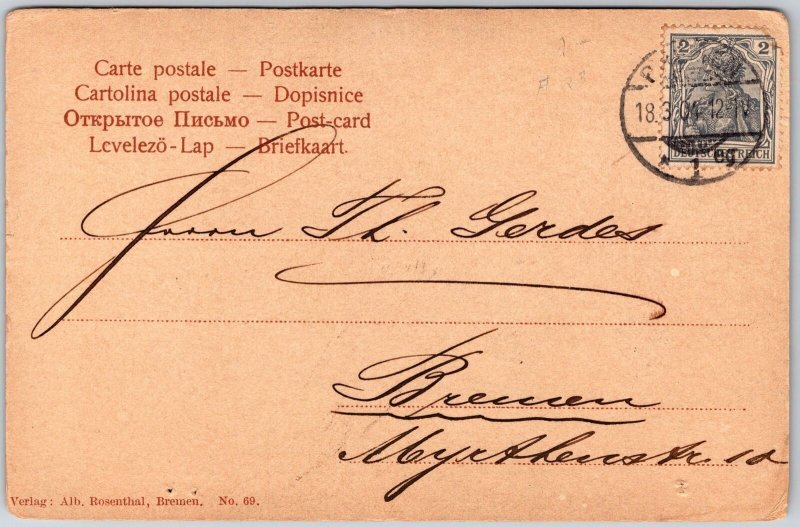 Carte postale — Postkarte
Cartolina postale — Dopisnice
Открытое Письмо — Post-card
Levelezö-Lap — Briefkaart.
2 2
18.3.04 12-1V
DEUTSCHES REICH
* 1 eg
Herrn Th. Gerdes
Bremen
Myrthenstr. 10
Verlag: Alb. Rosenthal, Bremen. No. 69.